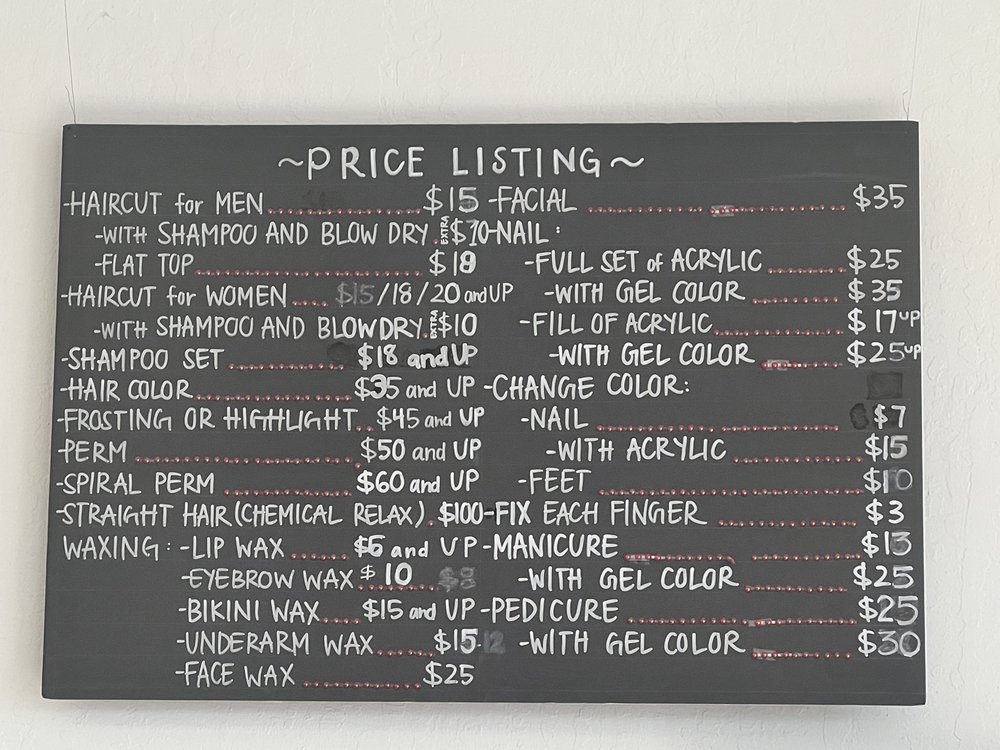 ~PRICE LISTING~
-HAIRCUT for MEN $15
-WITH SHAMPOO AND BLOW DRY EXTRA $10
-FLAT TOP $18
-HAIRCUT for WOMEN $15/18/20 and UP
-WITH SHAMPOO AND BLOWDRY EXTRA $10
-SHAMPOO SET $18 and UP
-HAIR COLOR $35 and UP
-FROSTING OR HIGHLIGHT $45 and UP
-PERM $50 and UP
-SPIRAL PERM $60 and UP
-STRAIGHT HAIR (CHEMICAL RELAX) $100
WAXING: -LIP WAX $6 and UP
-EYEBROW WAX $10
-BIKINI WAX $15 and UP
-UNDERARM WAX $15
-FACE WAX $25
-FACIAL $35
-NAIL:
-FULL SET of ACRYLIC $25
-WITH GEL COLOR $35
-FILL OF ACRYLIC $17 UP
-WITH GEL COLOR $25 UP
-CHANGE COLOR:
-NAIL $7
-WITH ACRYLIC $15
-FEET $10
-FIX EACH FINGER $3
-MANICURE $13
-WITH GEL COLOR $25
-PEDICURE $25
-WITH GEL COLOR $30